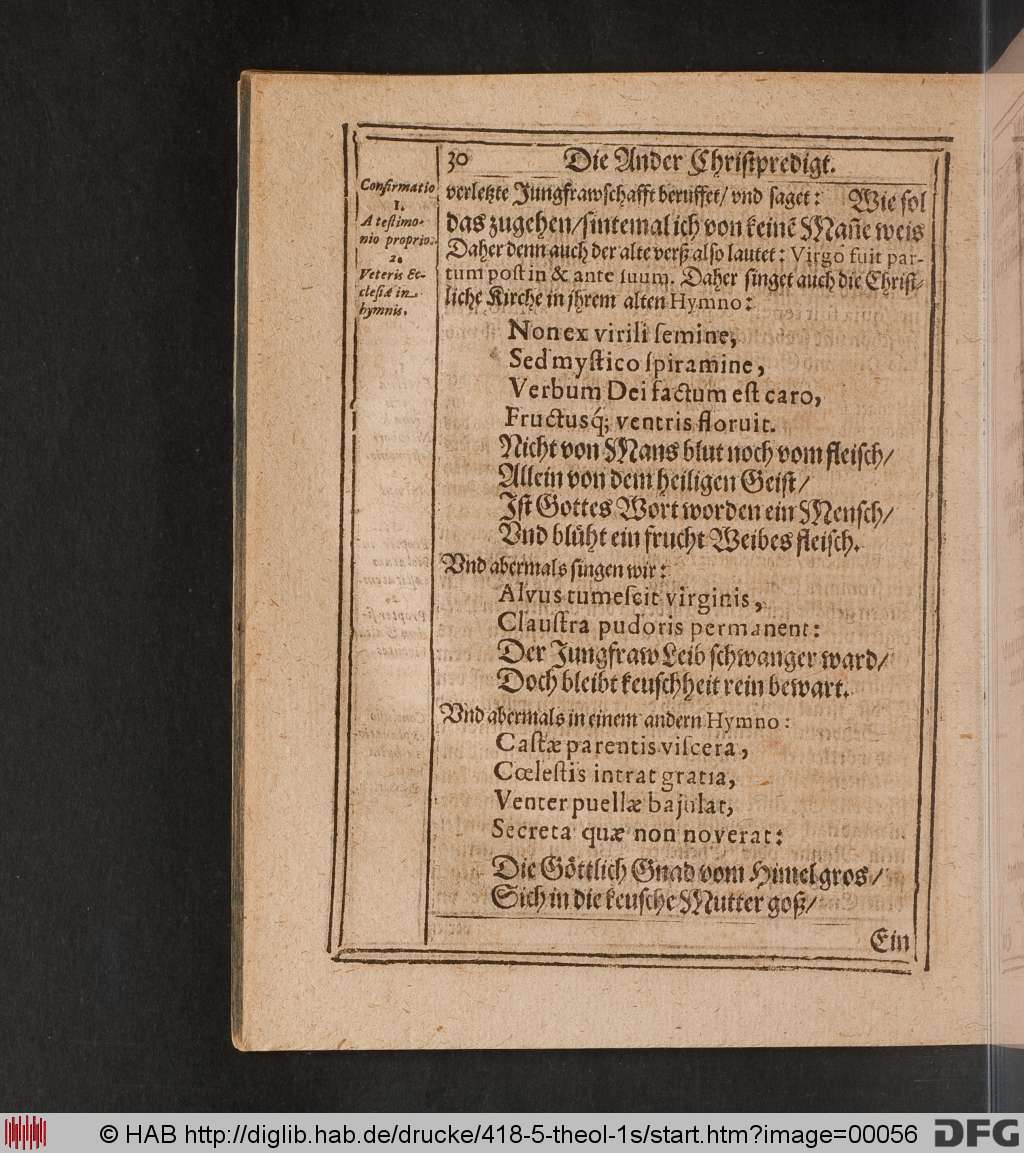 30 Die Ander Christpredigt.
Confirmatio
1.
A testimo-
nio proprio.
2.
Veteris Ec-
clesiæ in
hymnis.
verletzte Jungfrawschafft beruffet/ vnd saget: Wie sol
das zugehen/ sintemal ich von keinẽ Mañe weis
Daher denn auch der alte verß also lautet: Virgo fuit par-
tum post in & ante suum. Daher singet auch die Christ-
liche Kirche in jhrem alten Hymno:
Non ex virili semine,
Sed mystico spiramine,
Verbum Dei factum est caro,
Fructusq́; ventris floruit.
Nicht von Mans blut noch vom fleisch/
Allein von dem heiligen Geist/
Ist Gottes Wort worden ein Mensch/
Vnd blüht ein frucht Weibes fleisch.
Vnd abermals singen wir:
Alvus tumescit virginis,
Claustra pudoris permanent:
Der Jungfraw Leib schwanger ward/
Doch bleibt keuschheit rein bewart.
Vnd abermals in einem andern Hymno:
Castæ parentis viscera,
Cœlestis intrat gratia,
Venter puellæ bajulat,
Secreta quæ non noverat:
Die Göttlich Gnad vom Himel gros/
Sich in die keusche Mutter goß/
Ein
© HAB http://diglib.hab.de/drucke/418-5-theol-1s/start.htm?image=00056
DFG